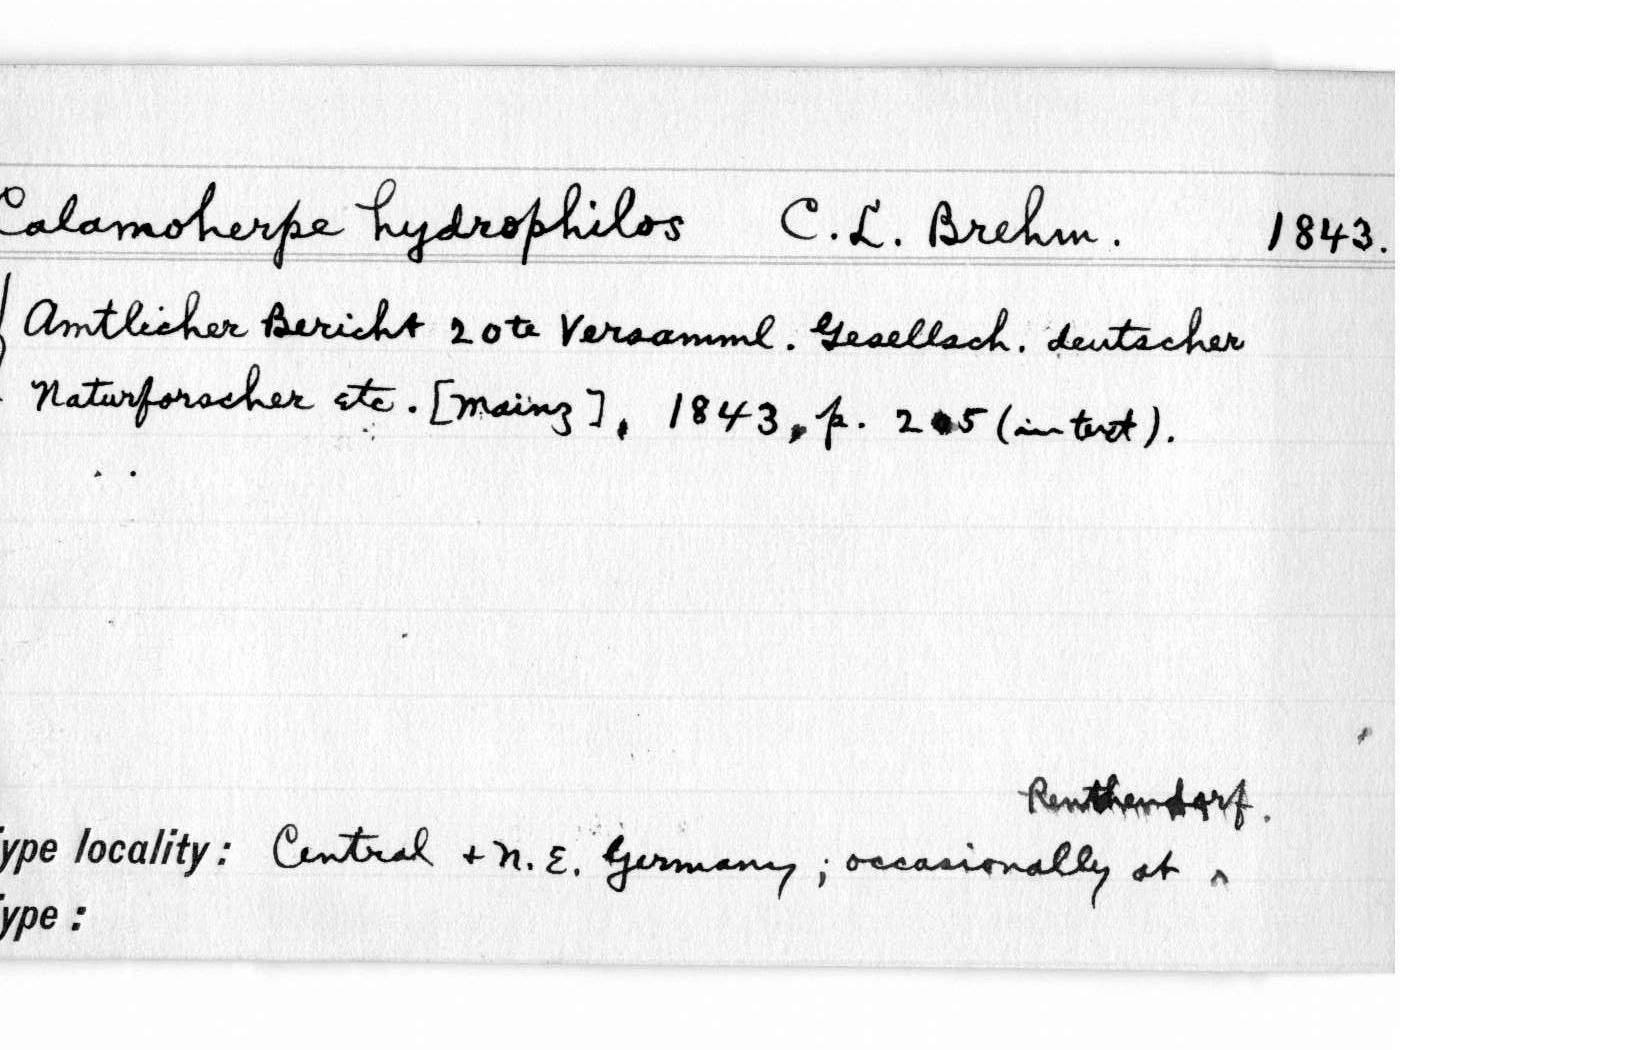 Calamoherpe hydrophilos C. L. Brehm. 1843.
Amtlicher Bericht 20te Versamml. Gesellsch. deutscher
Naturforscher etc. [Mainz], 1843, p. 205 (in text).
Renthendorf.
ype locality: Central + N. E. Germany; occasionally at ^
ype: